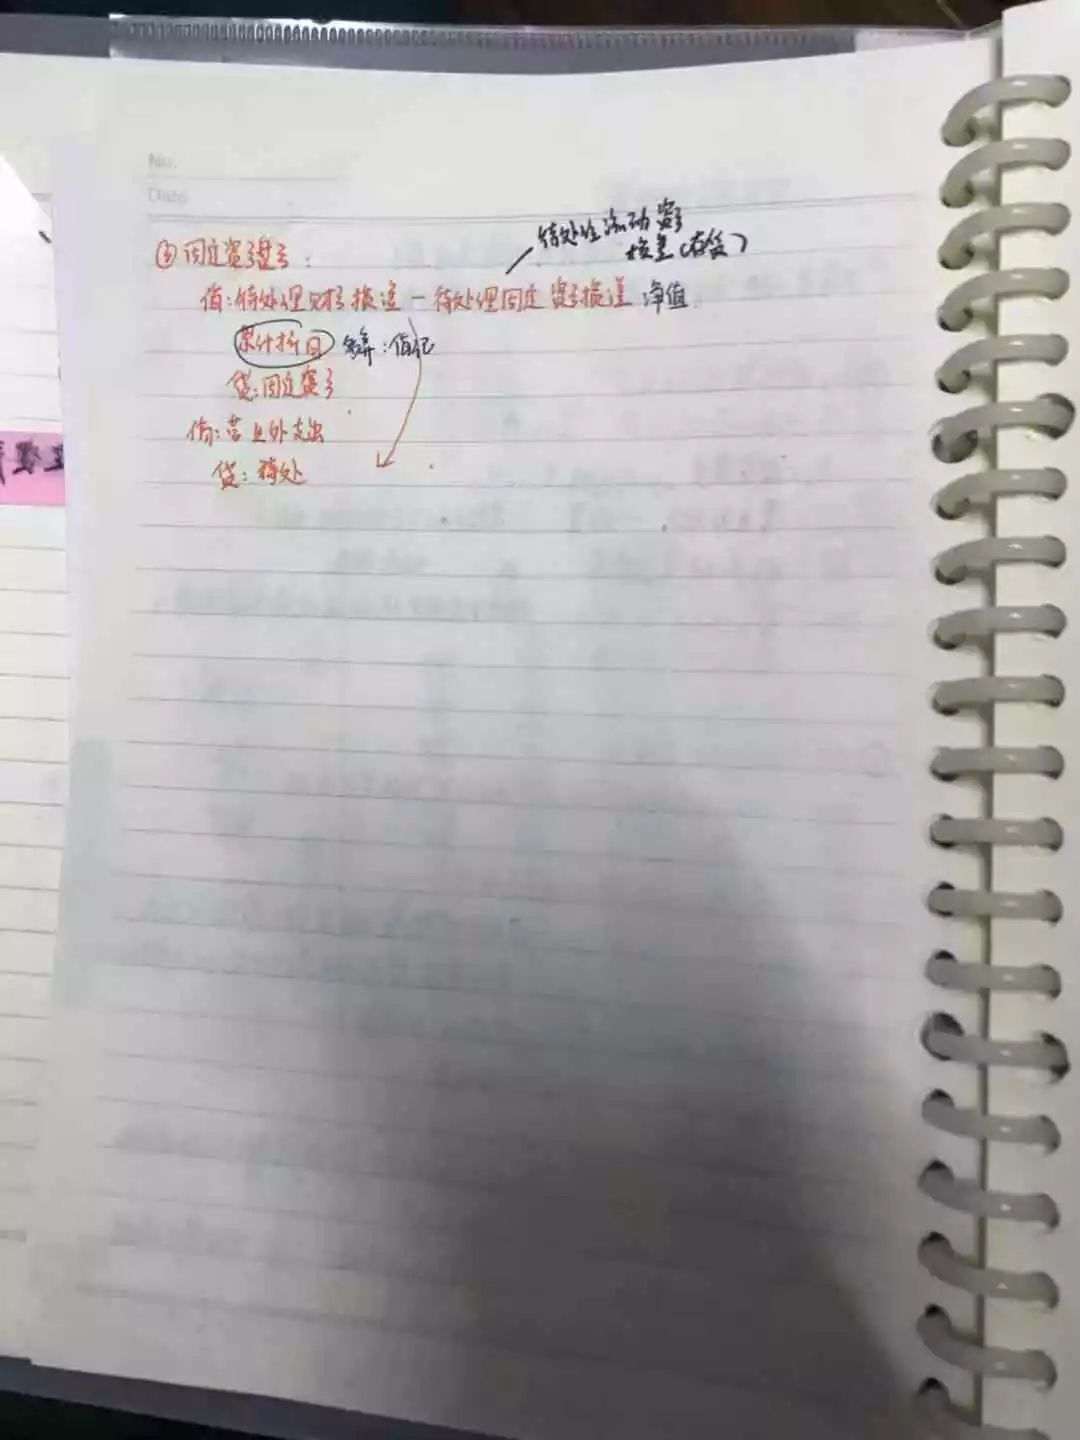 No.
Date
待处理流动资产
损益(存货)
③固定资产盘亏:
借:待处理财产损溢-待处理固定资产损溢 净值
累计折旧 备抵:借记
贷:固定资产
借:营业外支出
贷:待处